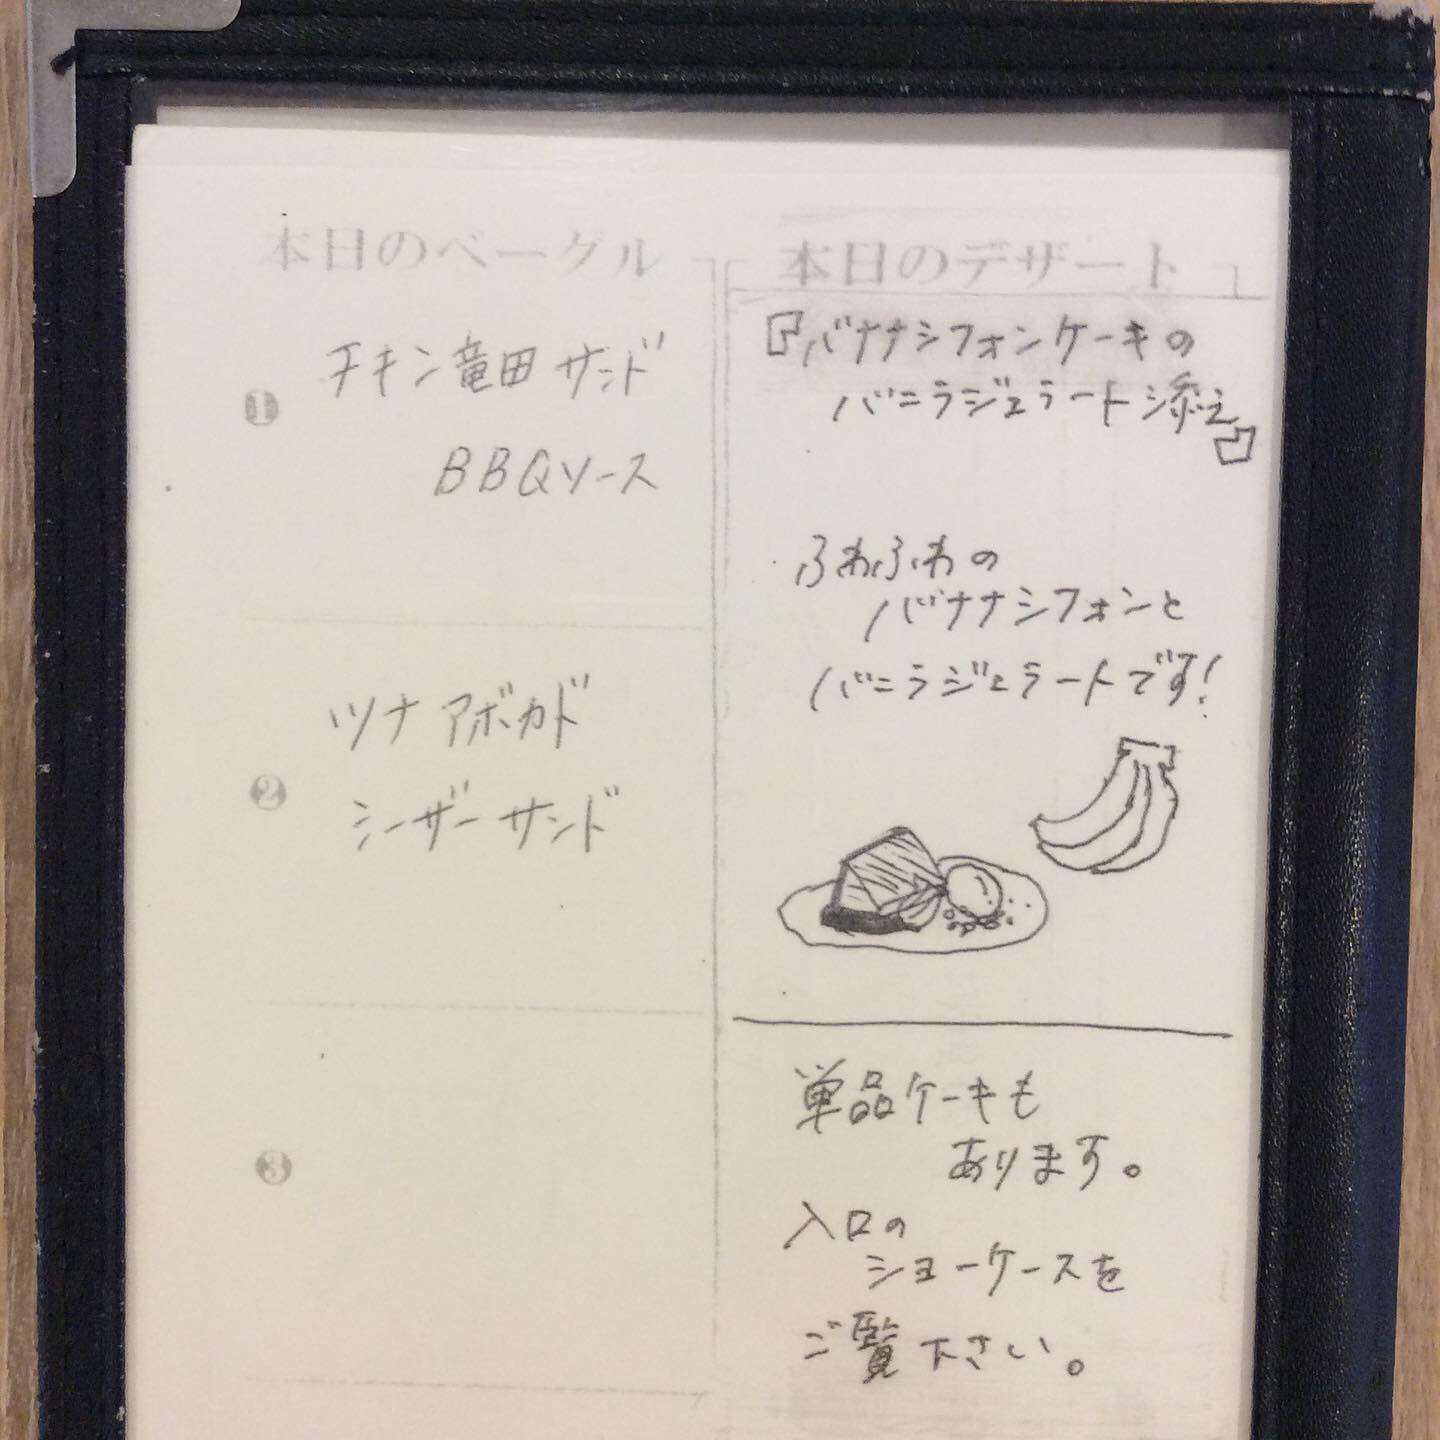 本日のベーグル
❶
チキン竜田サンド
BBQソース
❷
ツナアボカド
シーザーサンド
❸
本日のデザート
『バナナシフォンケーキの
バニラジェラート添え』
ふわふわの
バナナシフォンと
バニラジェラートです!
単品ケーキも
あります。
入口の
ショーケースを
ご覧下さい。